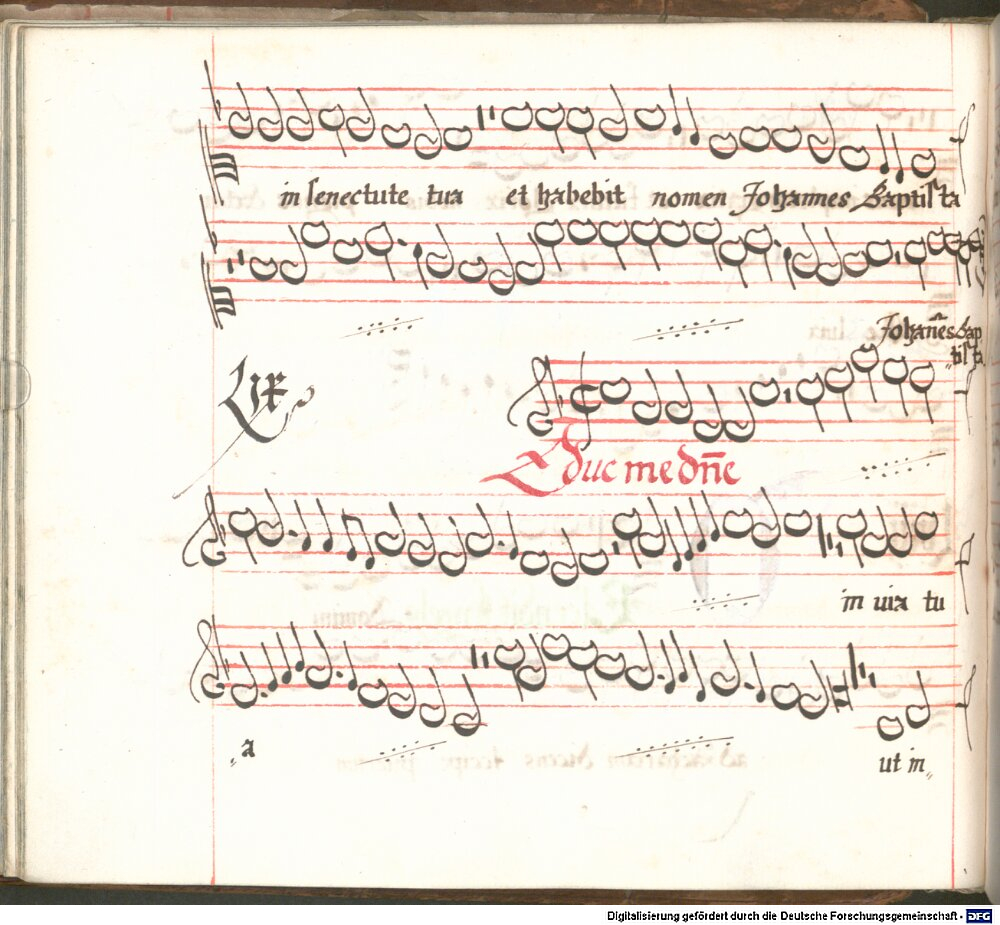 in senectute tua et habebit nomen Johannes Baptista
Johañes Bap
tista
Lix
Duc me dñe
in via tu
a
ut in
Digitalisierung gefördert durch die Deutsche Forschungsgemeinschaft - DFG